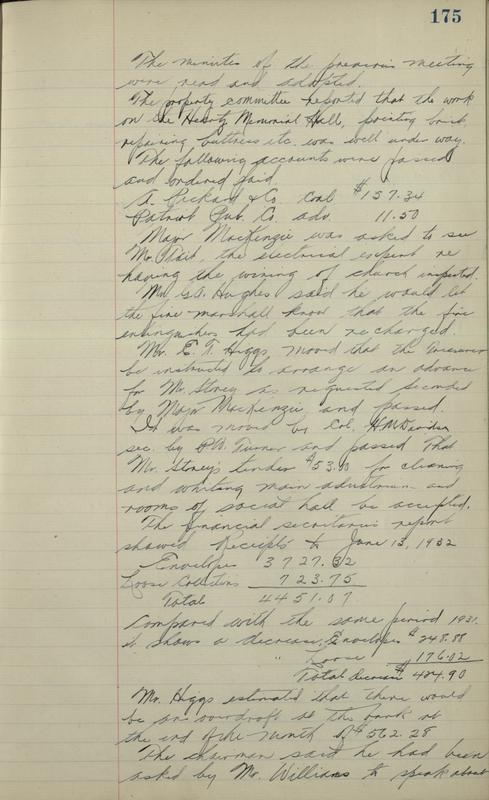 175
The minutes of the previous meeting
were read and adopted.
The property committee reported that the work
on the Memorial Hall, pointing brick,
repairing buttress etc. was well under way.
The following accounts were passed
and ordered paid.
A. Pickard & Co. Coal $157.34
Patriot Pub. Co. adv. 11.50
Major MacKenzie was asked to see
Mr. the electrical expert re
having the wiring of church inspected.
Mr. G.A. Hughes said he would let
the fire marshall know that the fire
extinguishers had been recharged.
Mr. E. T. Higgs, moved that the Treasurer
be instructed to arrange an advance
for Mr. Storey as requested seconded
by Major MacKenzie, and passed.
It was moved by Col. H.M. Davison
sec. by P.W. Turner and passed That
Mr. Storey's tender $53.00 for cleaning
and whiting main auditorium and
rooms of social hall be accepted.
The financial secretaries report
showed Receipts to June 13, 1932
Envelopes 3727.32
Loose Collections 723.75
Total 4451.07
Compared with the same period 1931.
it shows a decrease, Envelopes $248.88
" Loose 176.02
Total decrease $424.90
Mr. Higgs estimated that there would
be an overdraft at the bank at
the end of the month of $562.28
The chairman said he had been
asked by Mr. Williams to speak about